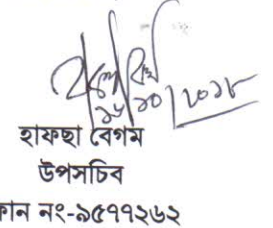 ১৬/১০/২০১৮
হাফছা বেগম
উপসচিব
ফোন নং-৯৫৭৭২৬২